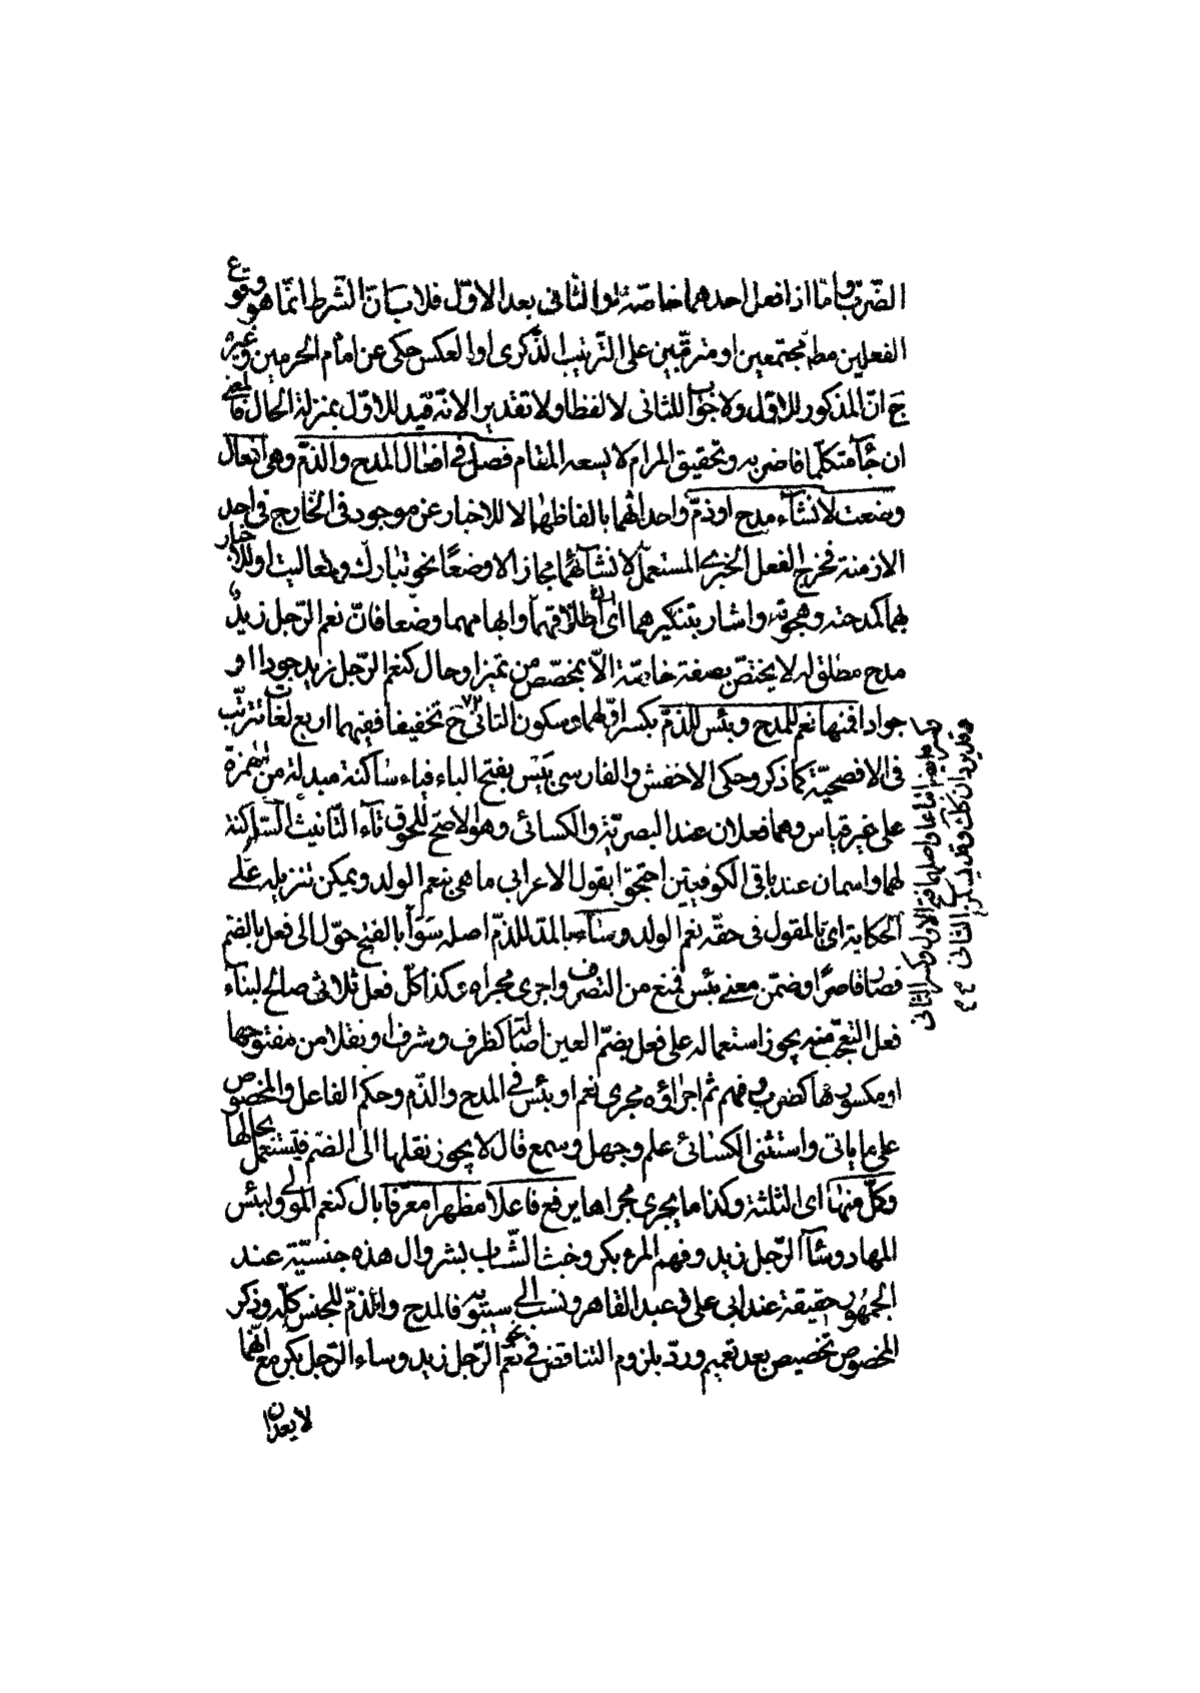 الضّرب وامّا اذا فعل احدهما خاصّة او الثانى بعد الاوّل فلا بيان الشّرط انّما هو وقوع
الفعلين مطم مجتمعين او مترقّبين على التّرتيب الذّكرى او العكس حكى عن امام الحرمين وغيره
ح انّ المذكور للاوّل ولا جواب للثانى لا لفظا ولا تقديرا لانّه قيد للاوّل بمنزلة الحال فالمعنى
ان جآء متكلّما فاضربه وتحقيق المرام لا يسعه المقام فصل فى افعال المدح والذّمّ وهى افعال
وضعت لانشآء مدح او ذمّ واحداثهما بالفاظها لا للاخبار عن موجود فى الخارج فى احد
الازمنة فخرج الفعل الخبرى المستعمل لانشآئهما مجازا لا وضعًا نحو تبارك وتعاليت او للاخبار
بهما كمدحته وهجوته واشار بتنكيرهما اى اطلاقهما وابهامهما وضعا فانّ نعم الرّجل زيدٌ
مدح مطلق له لا يختصّ بصفة خاصّة الّا بمخصّص من تميز او حال كنعم الرّجل زيد جودا او
جوادا فمنها نعم للمدح وبئس للذمّ بكسر اوّلهما وسكون الثانى ح تخفيفا ففيهما اربع لغات ترتّب
فى الافصحيّة كما ذكر وحكى الاخفش والفارسى بَيْس بفتح الباء فياء ساكنة مبدلة من الهمزة
على غير قياس وهما فعلان عند البصريّة والكسائى وهو الاصحّ للحوق تآء التّانيث السّاكنة
لهما واسمان عند باقى الكوفيين احتجّوا بقول الاعرابى ما هى بنعم الولد ويمكن تنزيله على
الحكاية اى بالمقول فى حقّه نعم الولد وسآء بالمدّ للذّم اصله سَوَأ بالفتح حوّل الى فعل بالضّم
فصار قاصرًا وضمّن معنى بئس فمنع من التصرّف واجرى مجراه وكذا كلّ فعل ثلاثى صالح لبنآء
فعل التعجّب منه يجوز استعماله على فعل بضمّ العين اصالتا كظرف وشرف او نقلا من مفتوحها
او مكسورها كضرب وفهم ثم اجراؤه مجرى نعم او بئس فى المدح والذّم وحكم الفاعل والمخصوص
على ما ياتى واستثنى الكسائى علم وجهل وسمع قال لا يجوز نقلها الى الضّم فيستعمل بحالها
وكلّ منها اى الثلثة وكذا ما يجرى مجراها يرفع فاعلا مظهرا معرّفا بال كنعم المولى ولبئس
المهاد وسآء الرّجل زيد وفهم المرء بكر وخبث الشّاب بشر وال هذه جنسيّة عند
الجمهور حقيقة عند ابى على وعبد القاهر ونسب الى سيبويه فالمدح والذّمّ للجنس كلّه وذكر
المخصوص تخصيص بعد تعميم وردّ بلزوم التناقض فى نحو نعم الرّجل زيد وساء الرّجل بكر مع انّهما
لا يعدّان
واصلهما فتح الاوّل وكسر الثانى
وقد يردان كك وقد يسكن الثانى